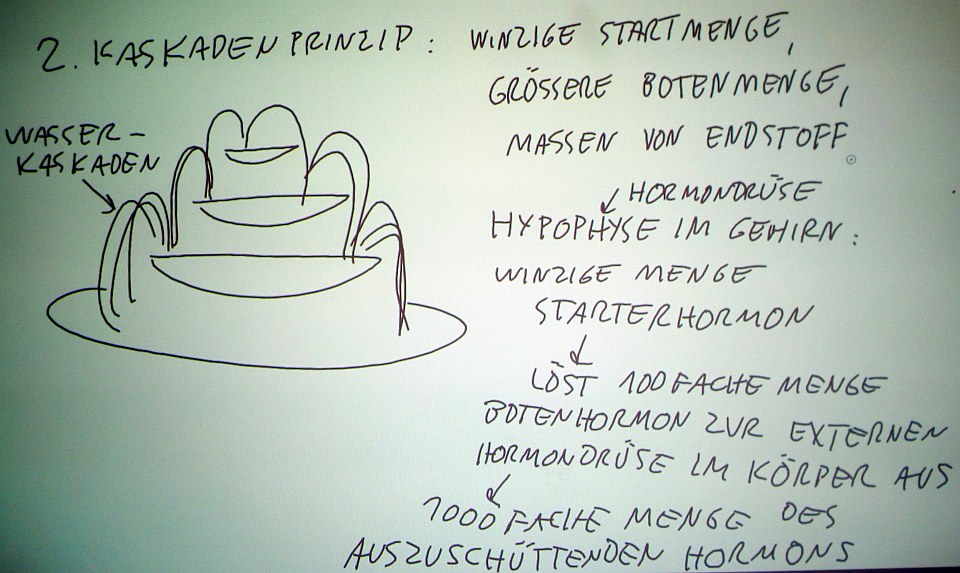 2. KASKADENPRINZIP: WINZIGE STARTMENGE,
GRÖSSERE BOTENMENGE,
MASSEN VON ENDSTOFF
WASSER-
KASKADEN
HORMONDRÜSE
HYPOPHYSE IM GEHIRN:
WINZIGE MENGE
STARTERHORMON
LÖST 100FACHE MENGE
BOTENHORMON ZUR EXTERNEN
HORMONDRÜSE IM KÖRPER AUS
1000FACHE MENGE DES
AUSZUSCHÜTTENDEN HORMONS